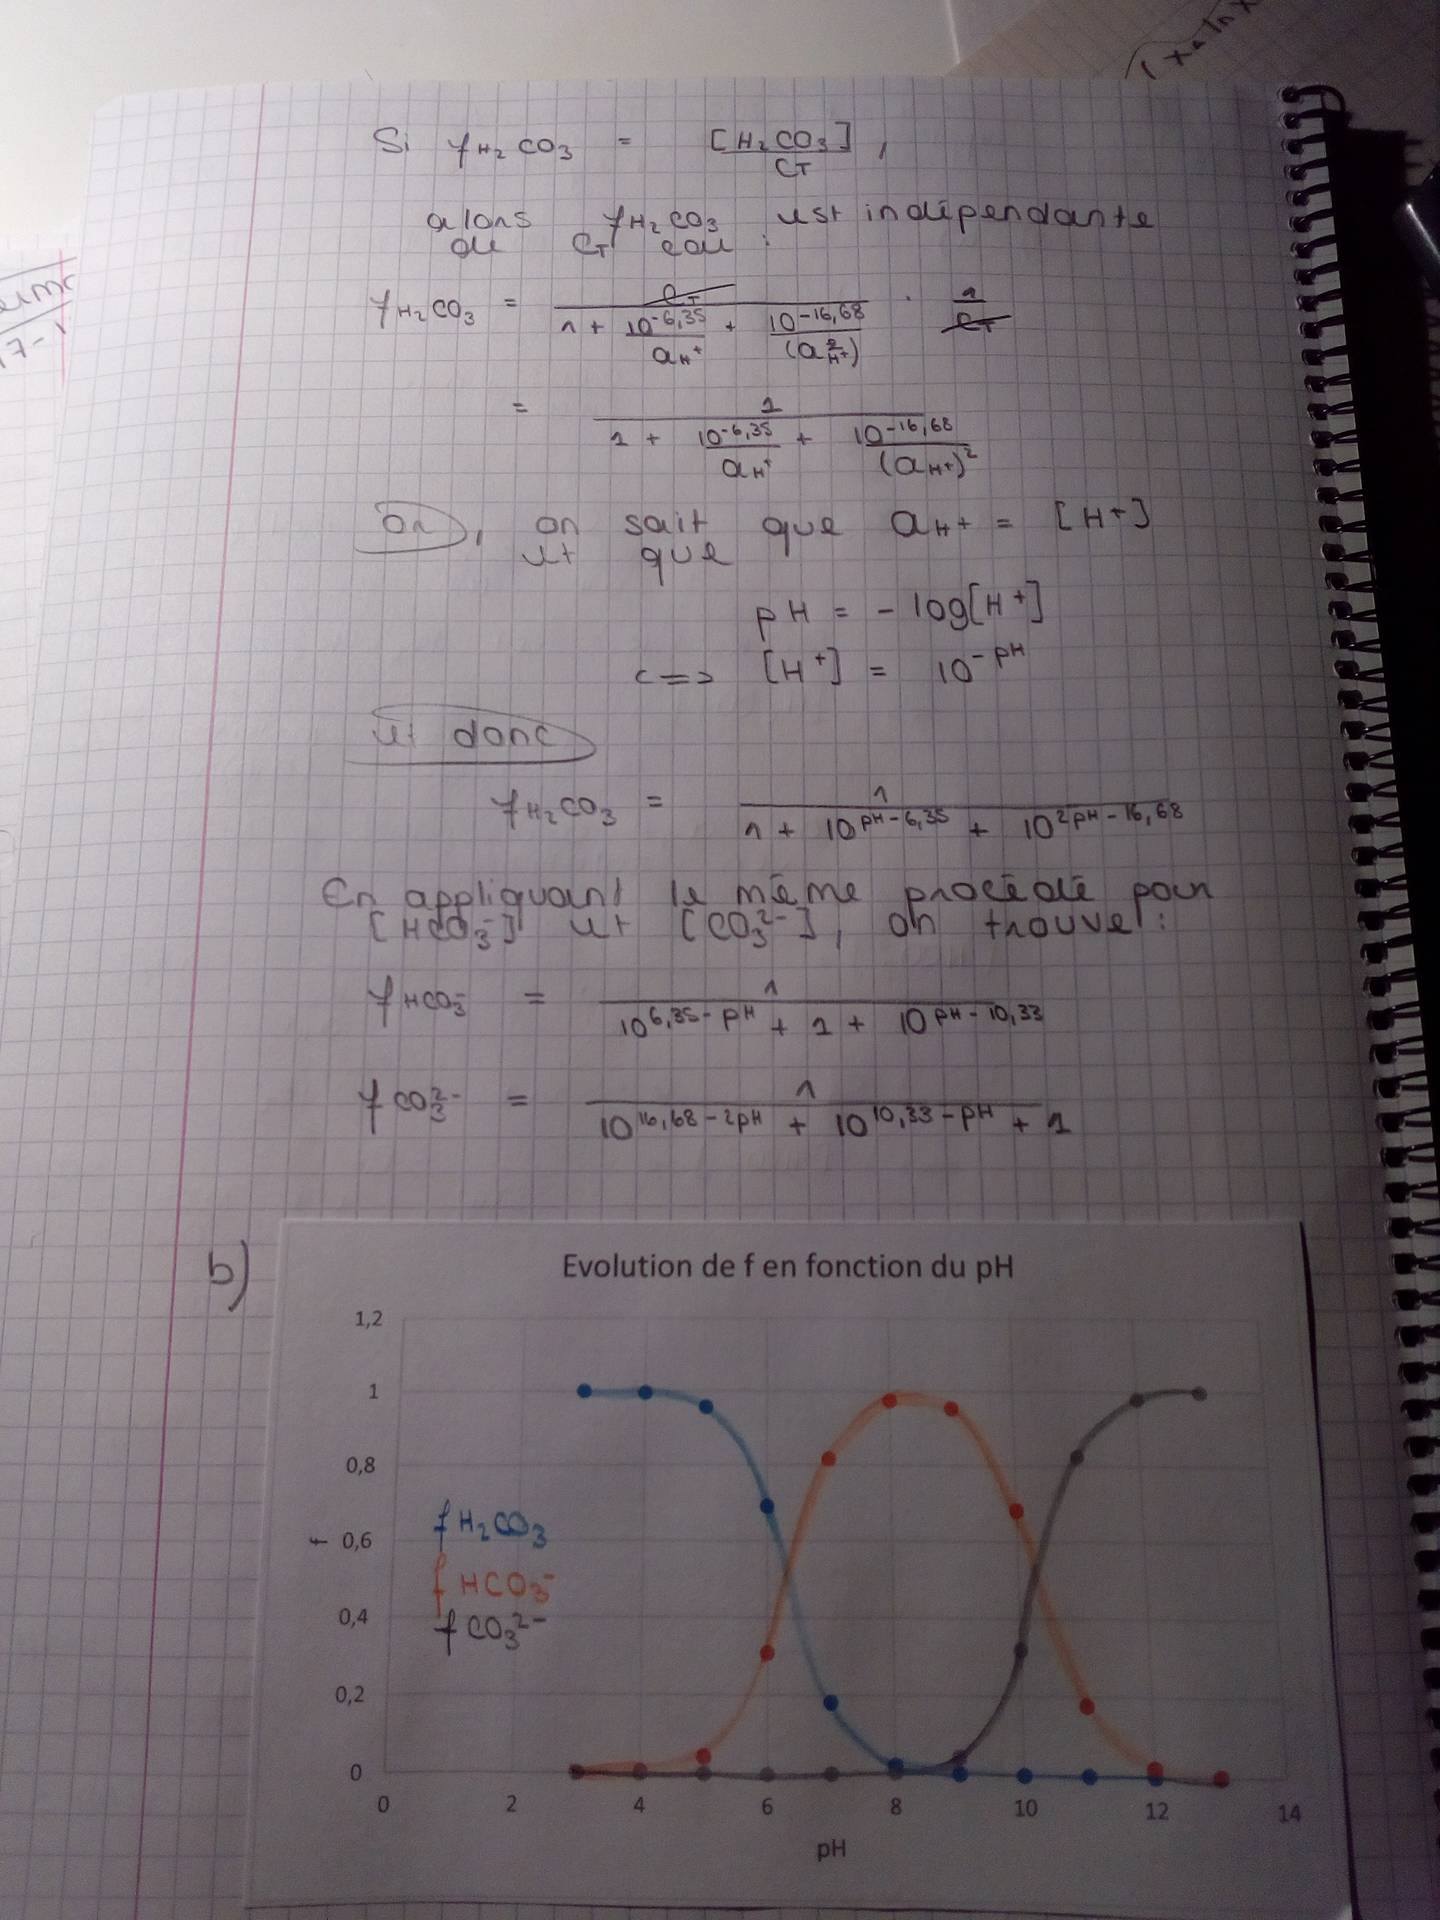 Si fH₂CO₃ = [H₂CO₃]/CT ,
alors fH₂CO₃ est indépendante
de CT car :
fH₂CO₃ = CT/(1 + 10^-6,35/aH+ + 10^-16,68/(a²H+)) · 1/CT
= 1/(1 + 10^-6,35/aH+ + 10^-16,68/(aH+)²)
Or, on sait que aH+ = [H+]
et que
pH = - log[H+]
<=> [H+] = 10^-pH
et donc
fH₂CO₃ = 1/(1 + 10^pH-6,35 + 10^2pH-16,68)
En appliquant le même procédé pour
[HCO₃⁻] et [CO₃²⁻], on trouve :
fHCO₃⁻ = 1/(10^6,35-pH + 1 + 10^pH-10,33)
fCO₃²⁻ = 1/(10^16,68-2pH + 10^10,33-pH + 1)
b)
Evolution de f en fonction du pH
1,2
1
0,8
f 0,6
0,4
0,2
0
fH₂CO₃
fHCO₃⁻
fCO₃²⁻
0 2 4 6 8 10 12 14
pH